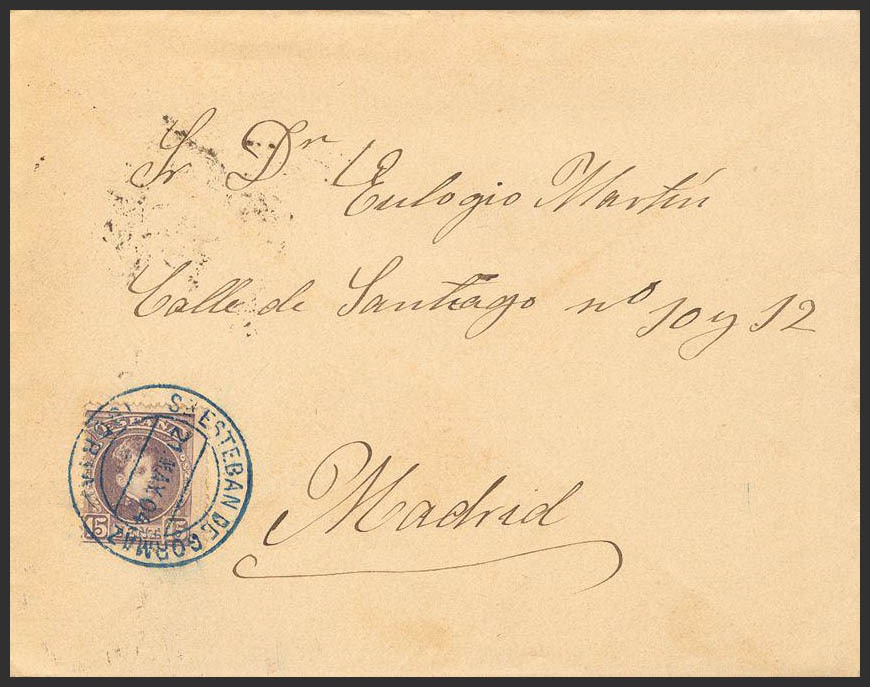 Sr Dr Eulogio Martín
Calle de Santiago nº 10 y 12
Madrid
ESPAÑA
15 15
S. ESTEBAN DE GORMAZ
(SORIA)
21 MAY 04